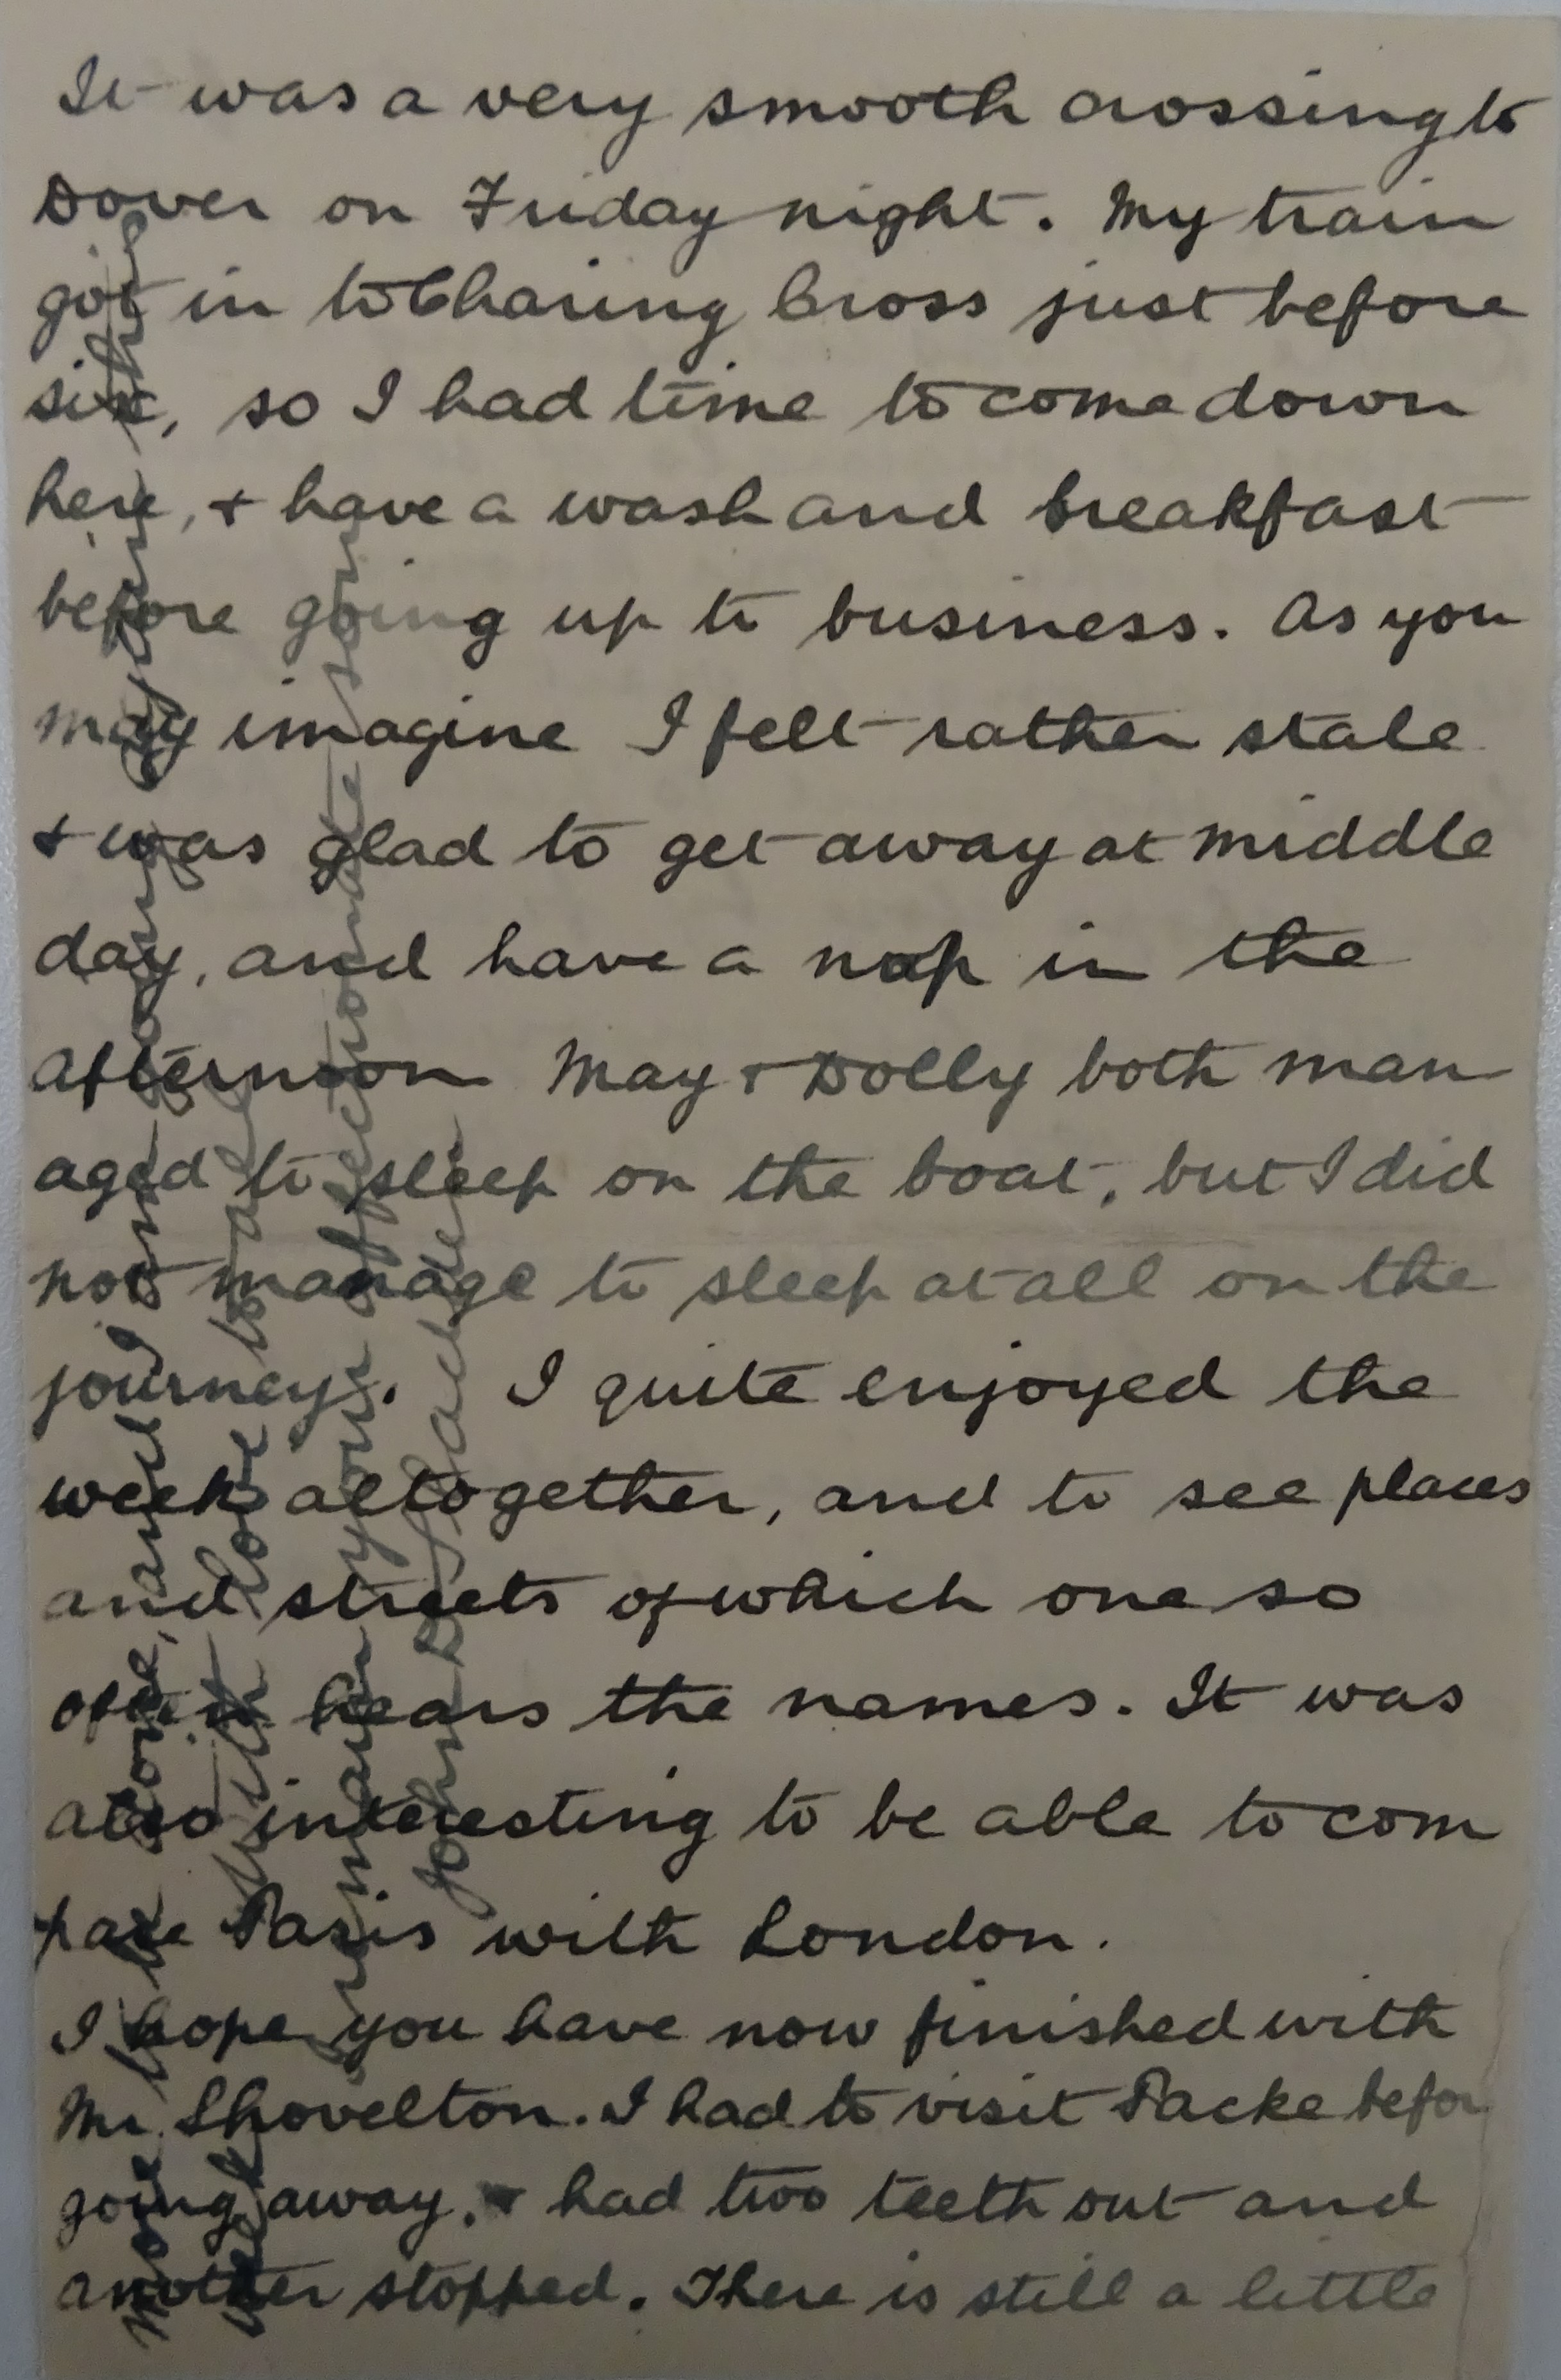 It was a very smooth crossing to
Dover on Friday night. My train
got in to Charing Cross just before
six, so I had time to come down
here, + have a wash and breakfast
before going up to business. As you
may imagine I felt rather stale
+ was glad to get away at middle
day, and have a nap in the
afternoon May + Dolly both man
aged to sleep on the boat, but I did
not manage to sleep at all on the
journey. I quite enjoyed the
week altogether, and to see places
and streets of which one so
often hears the names. It was
also interesting to be able to com
pare Paris with London.
I hope you have now finished with
Mr. Shovelton. I had to visit Packe befor
going away, + had two teeth out and
another stopped. There is still a little
more to be done, and I am going again
with love to all
I remain your affectionate son
John D.